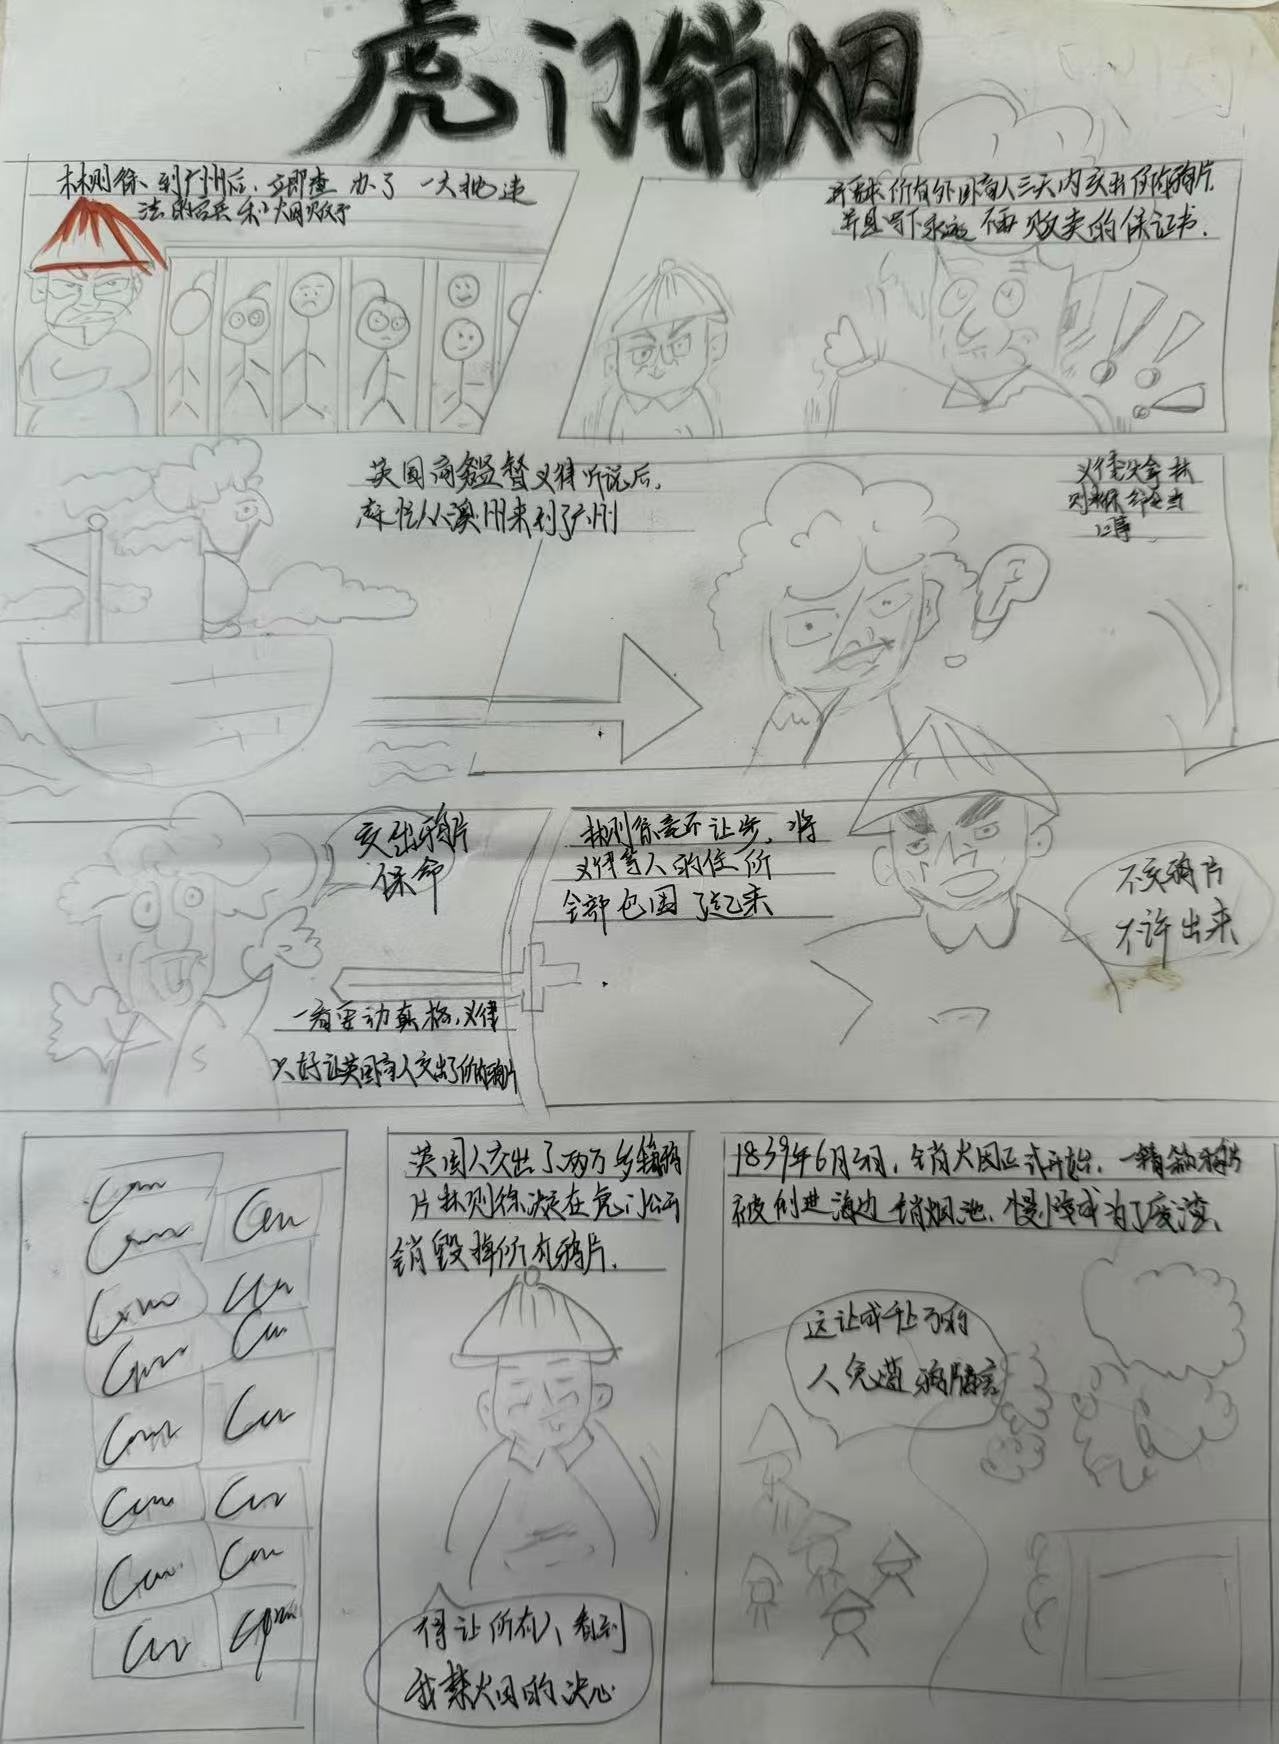 虎门销烟
林则徐到广州后，立即查办了一大批违
法的官兵和烟贩子
并要求所有外国商人三天内交出所有鸦片，
并且写下永远不再贩卖的保证书．
英国商务监督义律听说后，
赶忙从澳州来到广州
义律
交出鸦片
保命
林则徐毫不让步，将
义律等人的住所
全部包围了起来
不交鸦片
不许出来
一看要动真格，义律
只好让英国商人交出了所有鸦片
英国人交出了两万多箱鸦
片林则徐决定在虎门公开
销毁掉所有鸦片．
1839年6月3日，销烟正式开始，一箱箱鸦片
被倒进海边销烟池，慢慢成为了废渣、
这让成千上万的
人免遭鸦片
得让所有人看到
我禁烟的决心